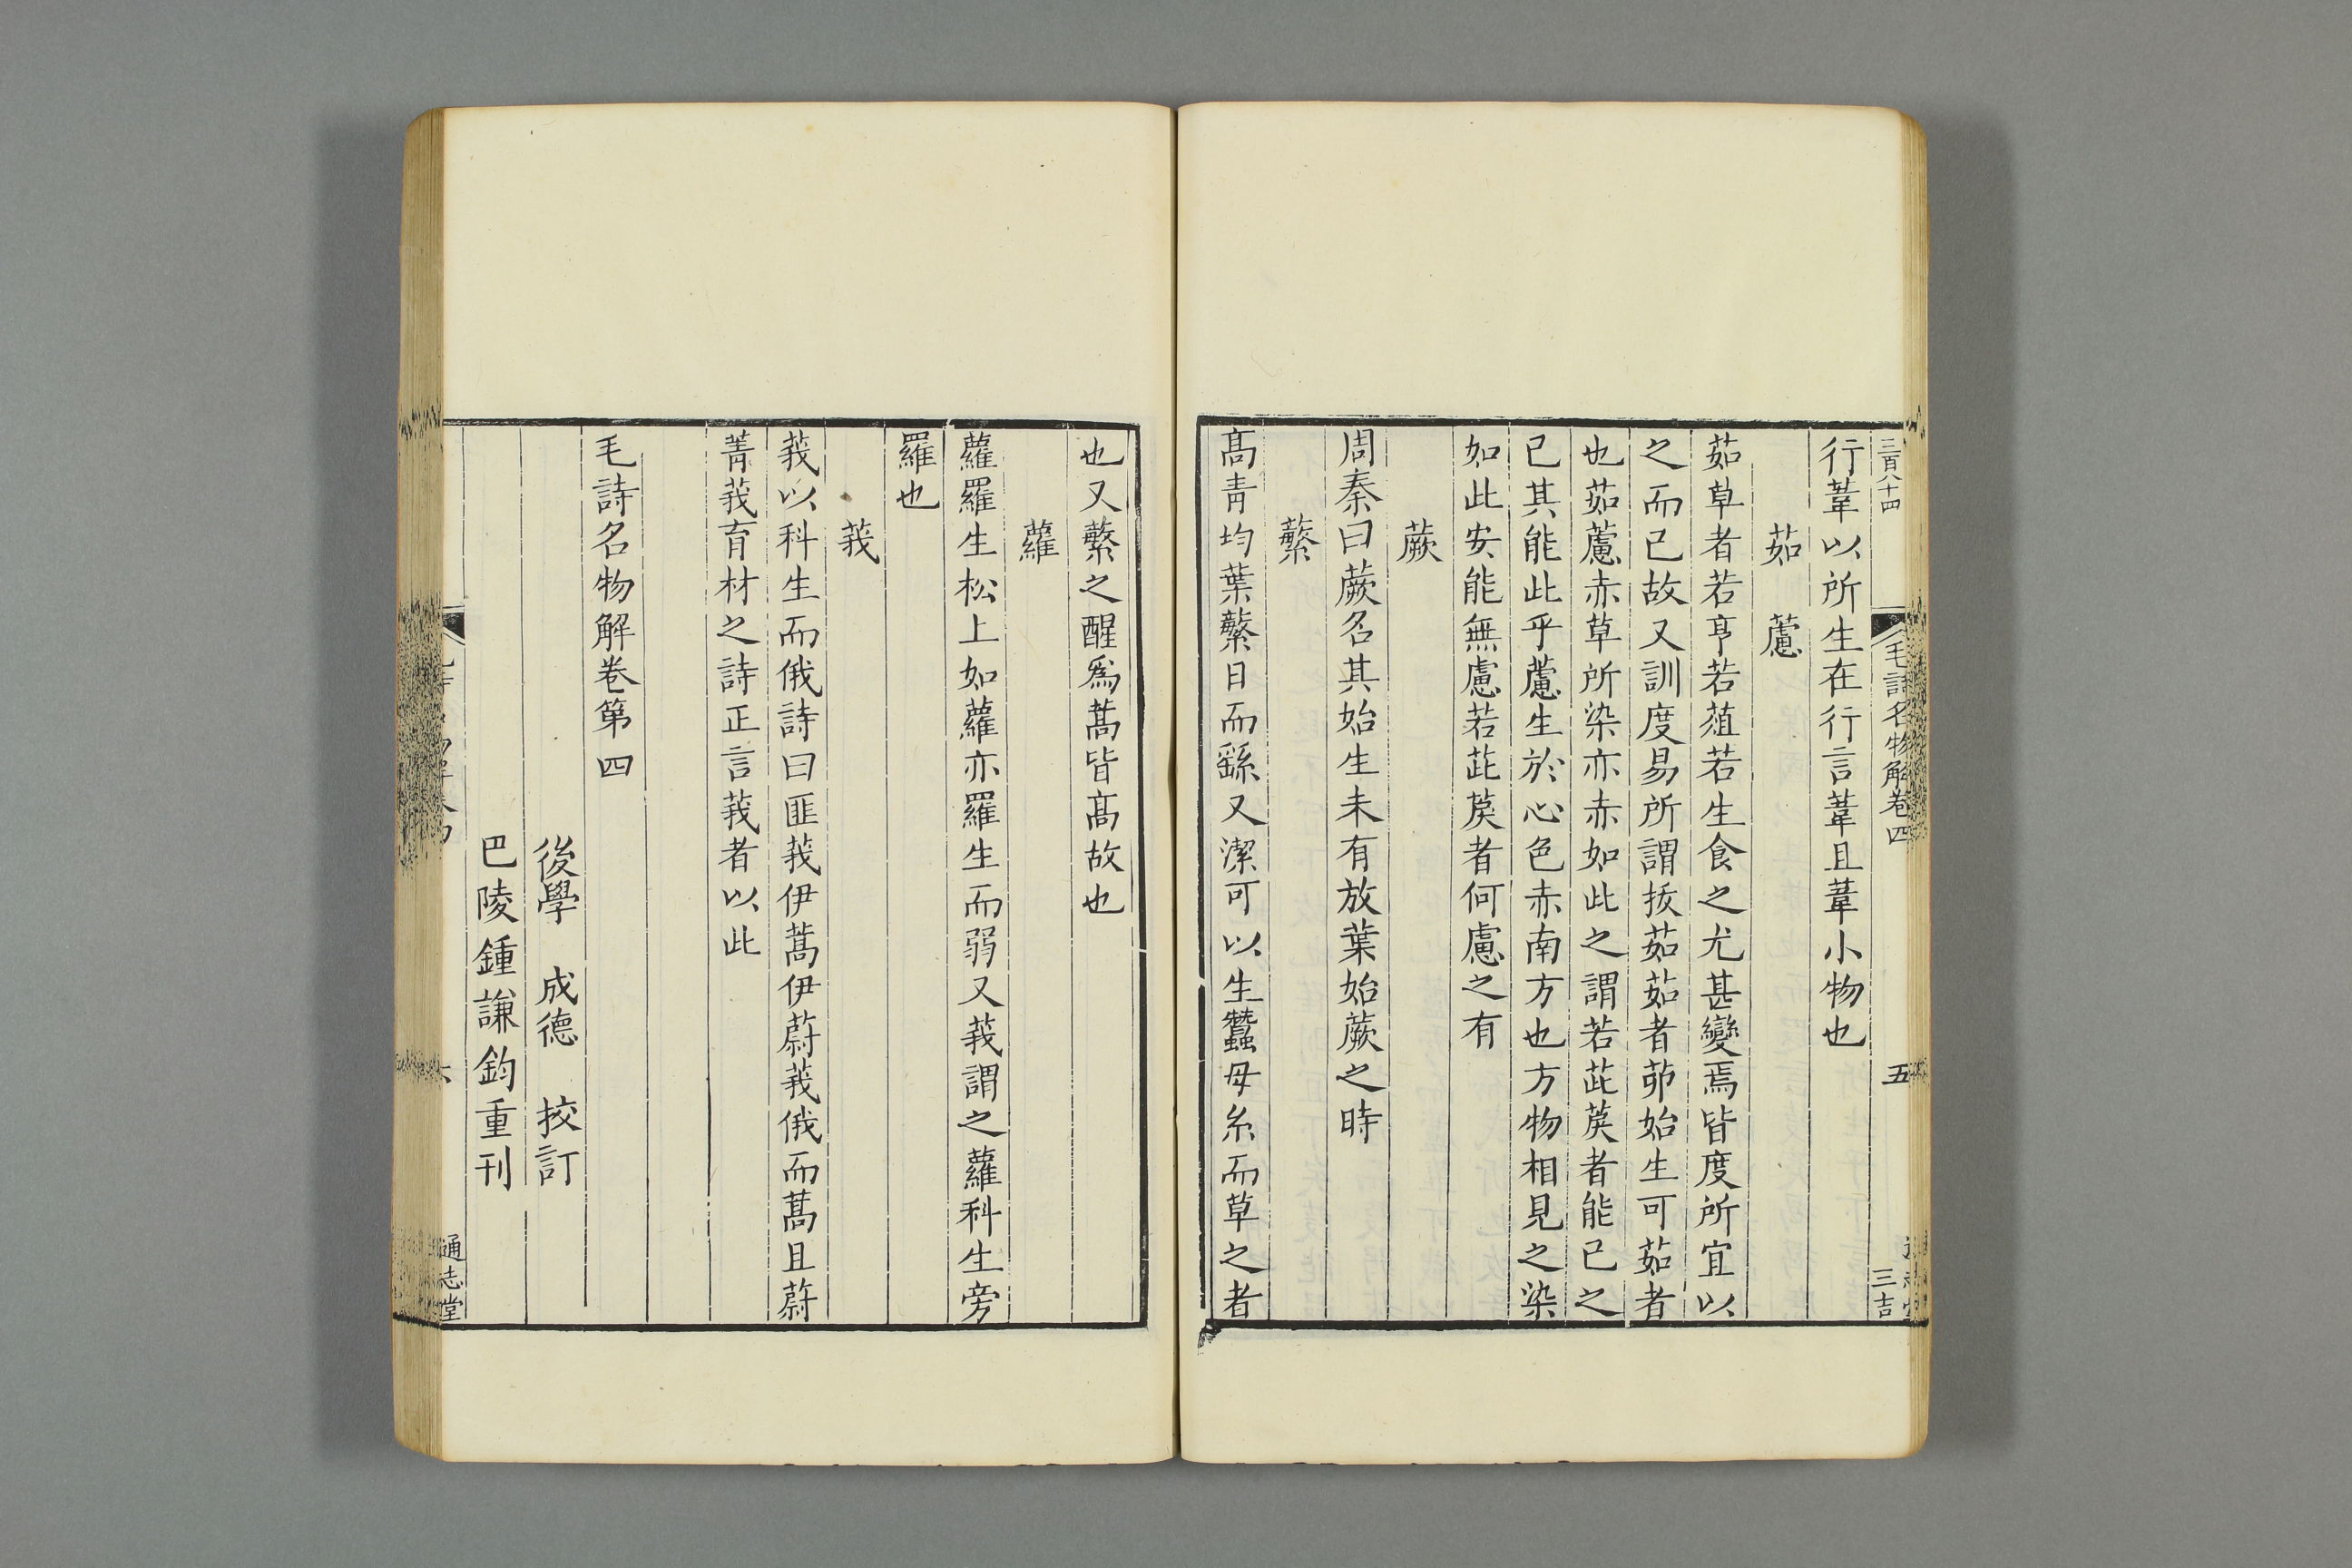 三百八十四
毛詩名物解卷四
五
三吉
行葦以所生在行言葦且葦小物也
茹藘
茹草者若亨若葅若生食之尤甚變焉皆度所宜以
之而已故又訓度易所謂拔茹茹者茆始生可茹者
也茹藘赤草所染亦赤如此之謂若茈莫者能已之
已其能此乎藘生於心色赤南方也方物相見之染
如此安能無慮若茈莫者何慮之有
蕨
周秦曰蕨名其始生未有放葉始蕨之時
蘩
高青均葉蘩日而繇又潔可以生蠶母糸而草之者
也又蘩之醒爲蒿皆高故也
蘿
蘿羅生松上如蘿亦羅生而弱又莪謂之蘿科生旁
羅也
莪
莪以科生而俄詩曰匪莪伊蒿伊蔚莪俄而蒿且蔚
菁莪育材之詩正言莪者以此
毛詩名物解卷第四
後學 成德 挍訂
巴陵鍾謙鈞重刊
通志堂